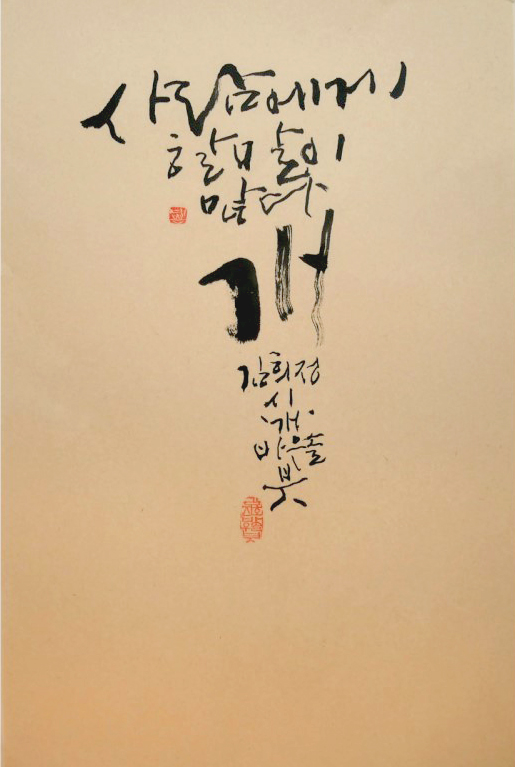 사람에게
할 말이
많다
개
김희정
시
개.
바우솔
붓